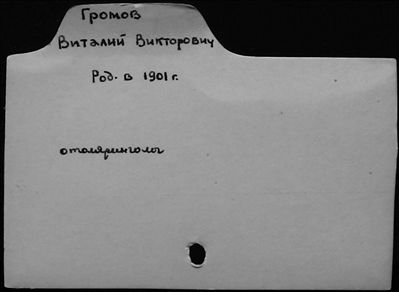 Громов
Виталий Викторович
Род. в 1901 г.
отоляринголог